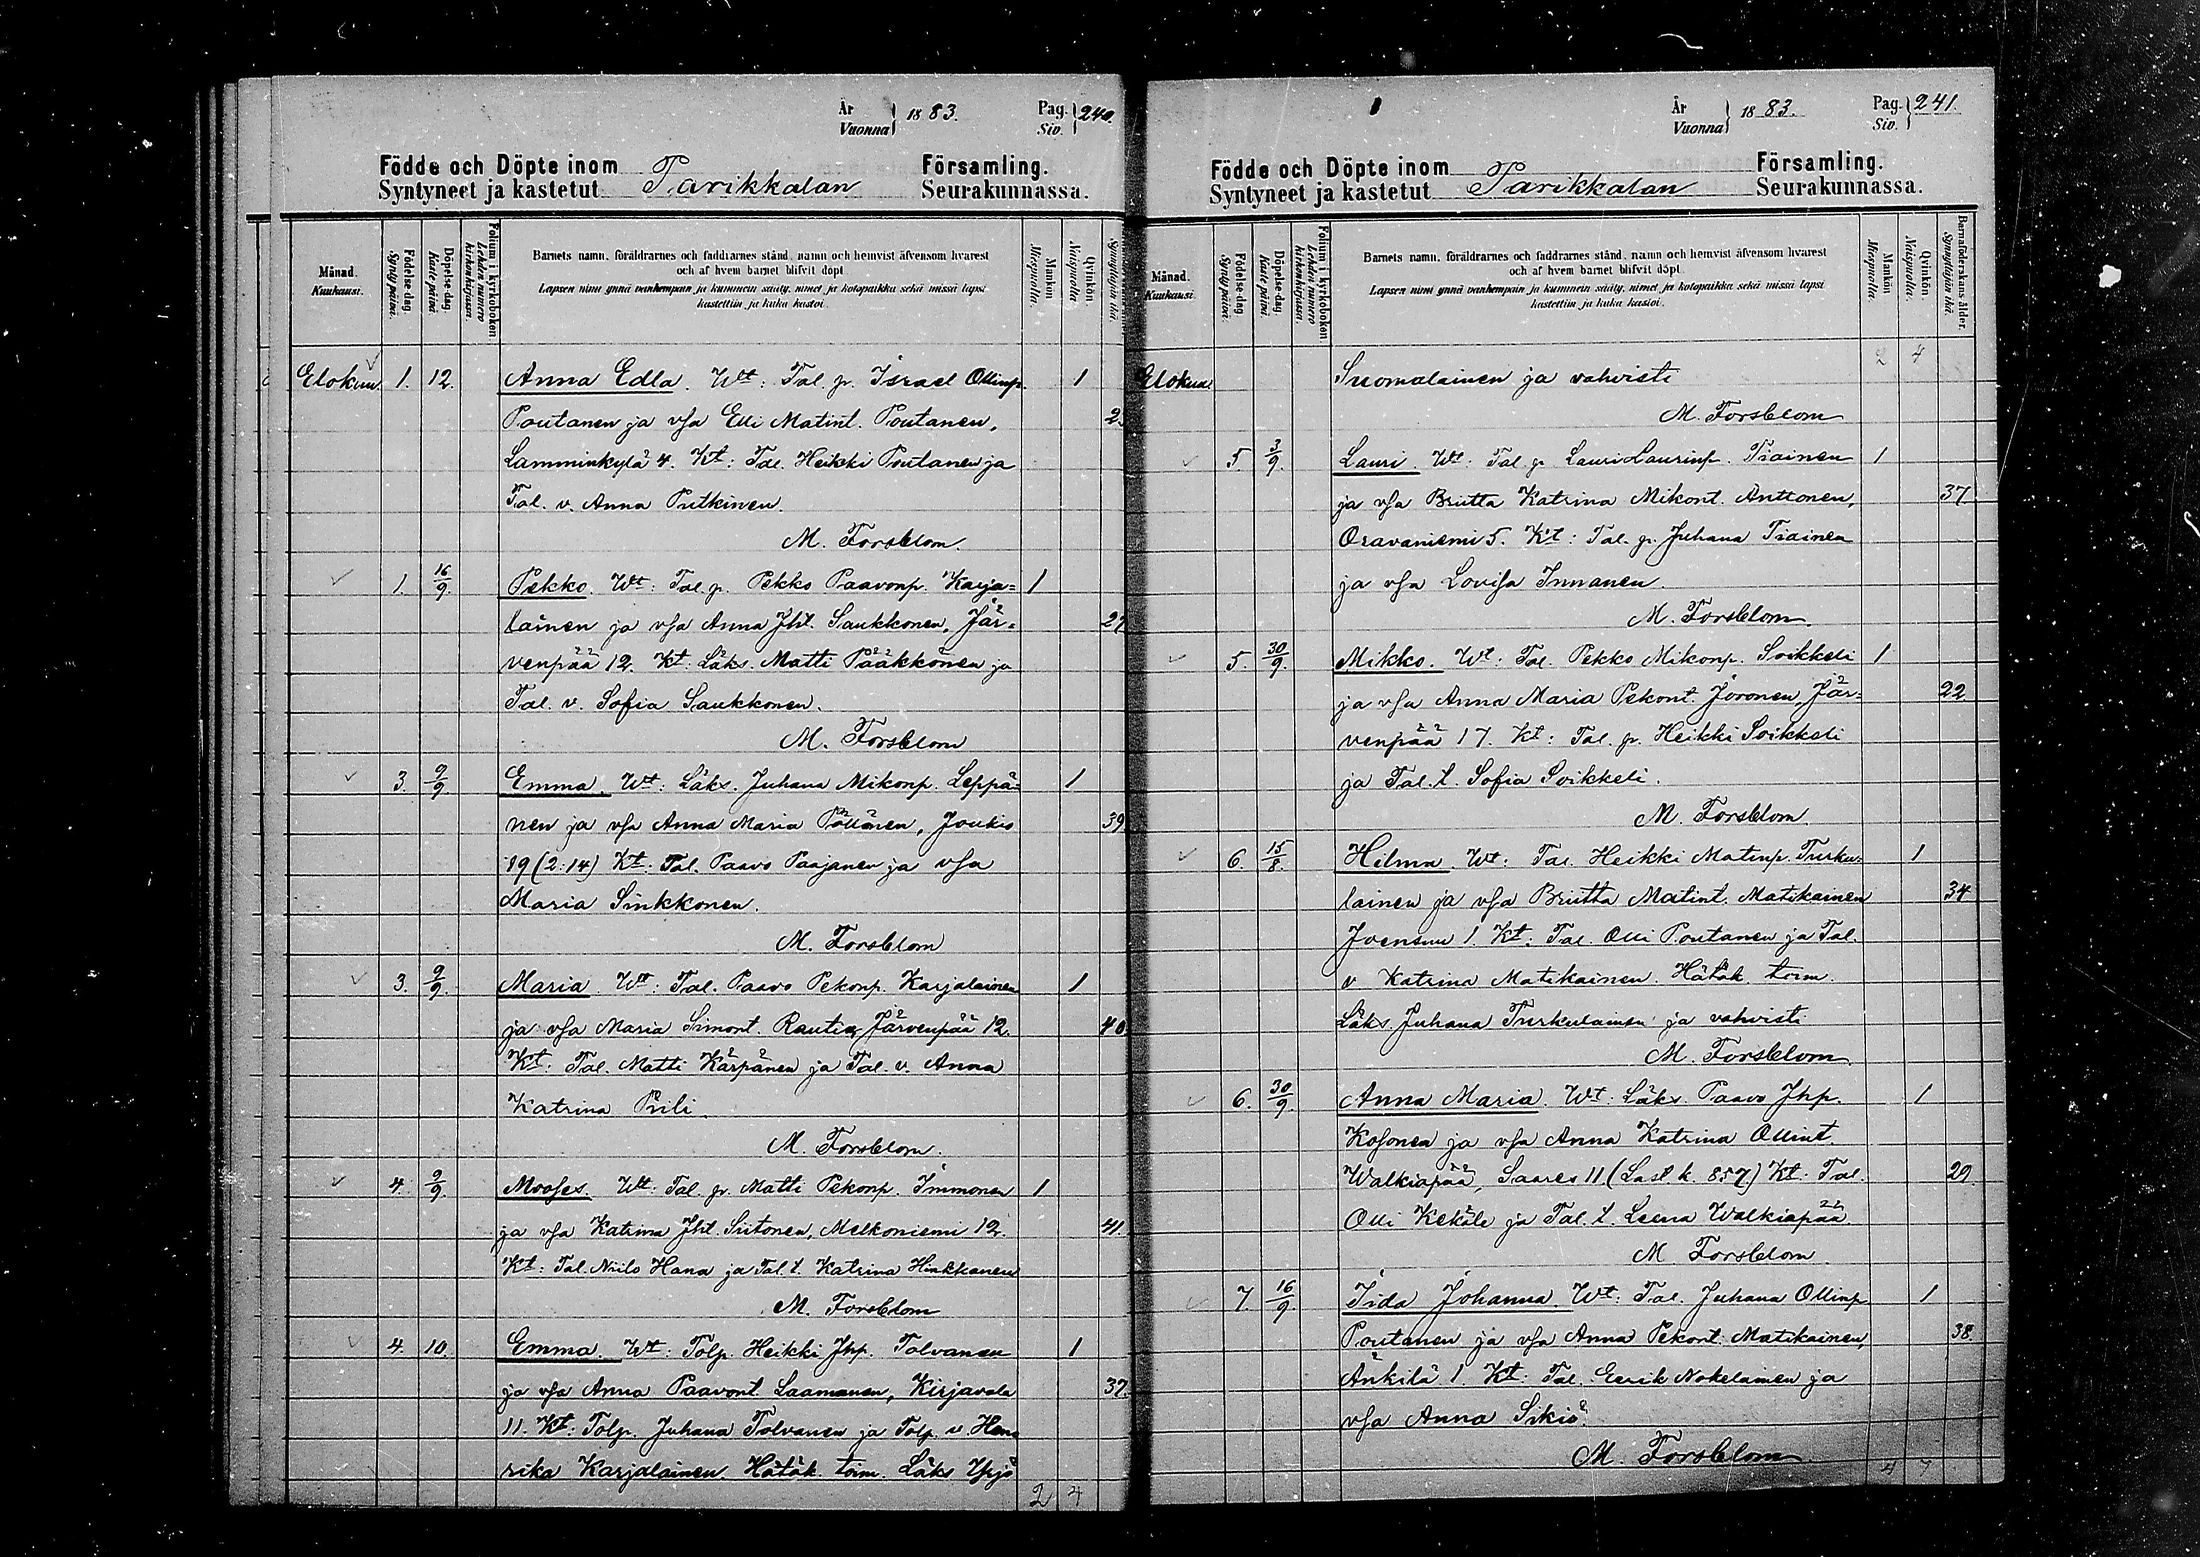 År
Vuonna
1883.
Pag.
Siv.
240.
Födde och Döpte inom Parikkalan Församling.
Syntyneet ja kastetut Seurakunnassa.
Månad. Kuukausi.
Födelse-dag. Syntypäivä.
Döpelse-dag. Kastepäivä.
Folium i kyrkoboken Lehden numero kirkonkirjassa.
Barnets namn, föräldrarnes och faddrarnes stånd, namn och hemvist äfvensom hvarest
och af hvem barnet blifvit döpt.
Lapsen nimi ynnä vanhempain ja kummein sääty, nimet ja kotopaikka sekä missä lapsi
kastettiin ja kuka kastoi.
Mankön Miespuolia.
Qvinkön. Naispuolia.
Synnyttäjän ikä.
Elokuu 1. 12. Anna Edla. Wt: Tal. p. Israel Ollinp. 1
Poutanen ja vsa Elli Matint. Poutanen,
Lamminkylä 4. Kt: Tal. Heikki Poutanen ja
Tal. v. Anna Putkinen.
M. Forsblom.
1. 16/9. Pekko. Wt: Tal. p. Pekko Paavonp. Karja= 1
lainen ja vsa Anna Jht. Saukkonen, Jär=
venpää 12. Kt: Läks. Matti Pääkkönen ja
Tal. v. Sofia Saukkonen.
M. Forsblom
3. 9/9. Emma. Wt: Läks. Juhana Mikonp. Leppä= 1
nen ja vsa Anna Maria Pöllänen, Joukio 39
19 (2:14) Kt: Tal. Paavo Paajanen ja vsa
Maria Sinkkonen.
M. Forsblom
3. 9/9. Maria Wt: Tal. Paavo Pekonp. Karjalainen 1
ja vsa Maria Simont. Rautia, Järvenpää 12. 40
Kt: Tal. Matti Kärpänen ja Tal. v. Anna
Katrina Pili.
M. Forsblom.
4. 9/9. Mooses. Wt: Tal. p. Matti Pekonp. Immonen 1
ja vsa Katrina Jht. Siitonen, Melkoniemi 12. 41.
Kt: Tal. Niilo Hana ja Tal. t. Katrina Hinkkanen
M. Forsblom
4. 10. Emma. Wt: Tolp. Heikki Jhp. Tolvanen 1
ja vsa Anna Paavont. Laamanen, Kirjavala 37.
11. Kt: Tolp. Juhana Tolvanen ja Tolp. v. Hen=
rika Karjalainen. Hätäk. toim. Läks. Yrjö
2 4
År
Vuonna
1883.
Pag.
Siv.
241.
Födde och Döpte inom Parikkalan Församling.
Syntyneet ja kastetut Seurakunnassa.
Månad. Kuukausi.
Födelse-dag. Syntypäivä.
Döpelse-dag. Kastepäivä.
Folium i kyrkoboken Lehden numero kirkonkirjassa.
Barnets namn, föräldrarnes och faddrarnes stånd, namn och hemvist äfvensom hvarest
och af hvem barnet blifvit döpt.
Lapsen nimi ynnä vanhempain ja kummein sääty, nimet ja kotopaikka sekä missä lapsi
kastettiin ja kuka kastoi.
Mankön Miespuolia.
Qvinkön Naispuolia.
Barnaföderskans ålder. Synnyttäjän ikä.
2 4
Elokuu Suomalainen ja vahvisti
M. Forsblom
5 3/9. Lauri. Wt: Tal. p. Lauri Laurinp. Tiainen 1
ja vsa Briitta Katrina Mikont. Anttonen, 37.
Oravaniemi 5. Kt: Tal. p. Juhana Tiainen
ja vsa Lovisa Innanen.
M. Forsblom.
5. 30/9. Mikko. Wt: Tal. Pekko Mikonp. Soikkeli 1
ja vsa Anna Maria Pekont. Joronen, Jär= 22
venpää 17. Kt: Tal. p. Heikki Soikkeli
ja Tal. t. Sofia Soikkeli.
M. Forsblom
6. 15/8. Hilma. Wt: Tal. Heikki Matinp. Turku= 1
lainen ja vsa Briitta Matint. Matikainen 34
Joensuu 1. Kt: Tal. Olli Poutanen ja Tal.
v Katrina Matikainen. Hätäk. toim.
Läks. Juhana Turkulainen ja vahvisti
M. Forsblom
6. 30/9. Anna Maria. Wt: Läks. Paavo Jhp. 1
Kosonen ja vsa Anna Katrina Ollint.
Walkiapää, Saares 11 (Last k. 857.) Kt: Tal. 29.
Olli Kekäle ja Tal. t. Leena Walkiapää.
M Forsblom
7. 16/9. Iida Johanna. Wt: Tal. Juhana Ollinp. 1
Poutanen ja vsa Anna Pekont. Matikainen, 38.
Änkilä 1. Kt: Tal. Eerik Nokelainen ja
vsa Anna Sikiö.
M. Forsblom.
4 7